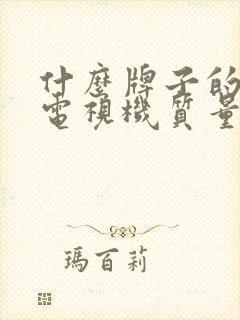 什麼牌子的
電視機質量
瑪百莉